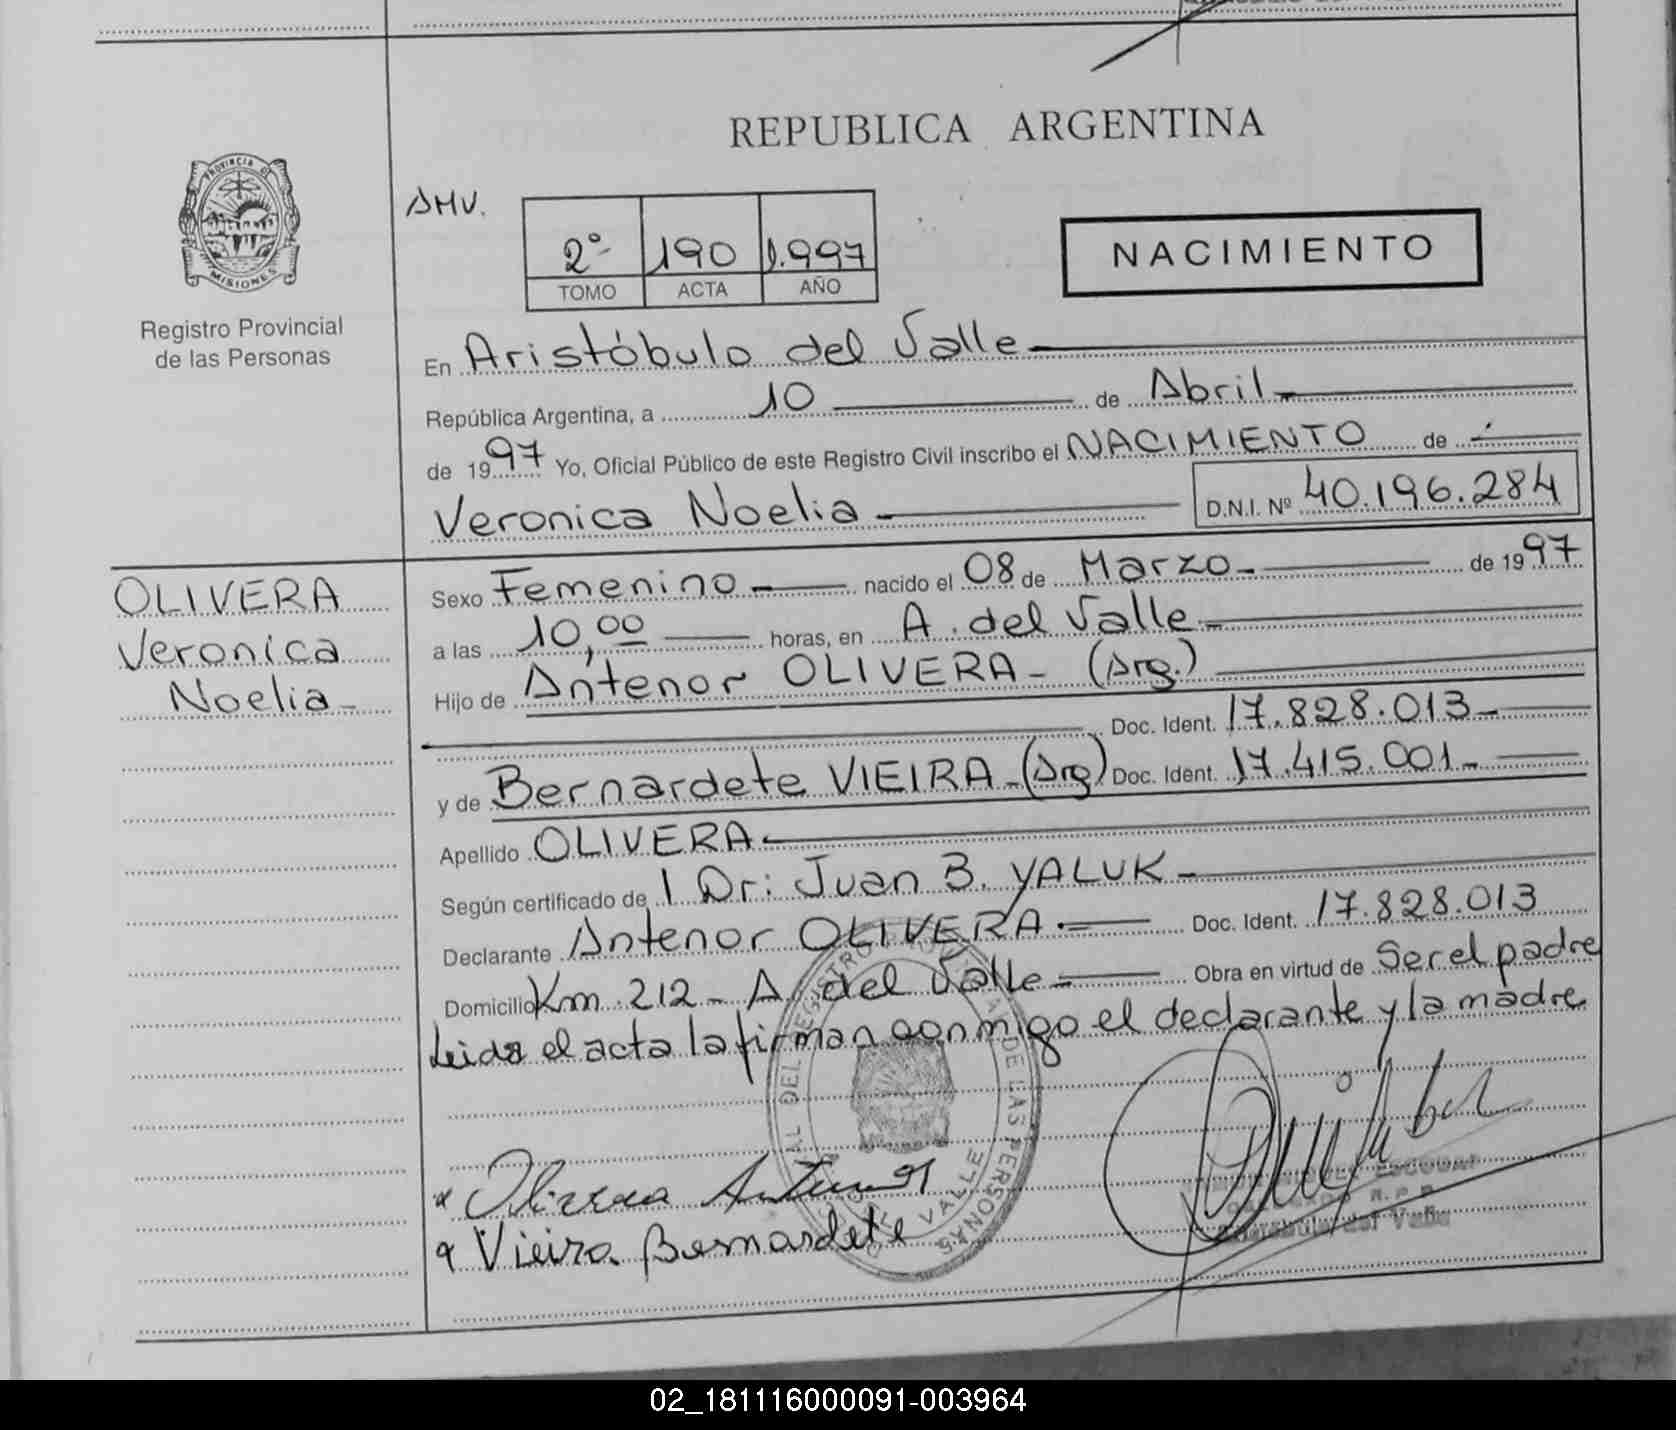 REPUBLICA ARGENTINA
PROVINCIA DE
MISIONES
Registro Provincial
de las Personas
AMV.
2º 190 1.997
TOMO ACTA AÑO
NACIMIENTO
En Aristóbulo del Valle
República Argentina, a 10 de Abril
de 1997 Yo, Oficial Público de este Registro Civil inscribo el NACIMIENTO de
Veronica Noelia D.N.I. Nº 40.196.284
OLIVERA
Veronica
Noelia
Sexo Femenino nacido el 08 de Marzo de 1997
a las 10,00 horas, en A. del Valle
Hijo de Antenor OLIVERA - (Arg.)
Doc. Ident. 17.828.013
y de Bernardete VIEIRA - (Arg) Doc. Ident. 17.415.001
Apellido OLIVERA
Según certificado de l Dr: Juan B. YALUK
Declarante Antenor OLIVERA Doc. Ident. 17.828.013
Domicilio Km 212 - A. del Valle Obra en virtud de Ser el padre
Leida el acta la firman conmigo el declarante y la madre
Olivera Antenor
Vieira Bernardete
ESCOBAR
R.P.P.
Aristobulo del Valle
DEL REGISTRO PROVINCIAL DE LAS PERSONAS
VALLE
02_181116000091-003964